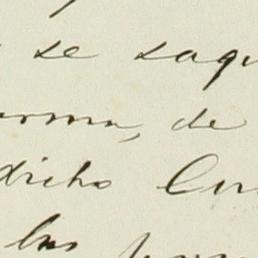 se saqu
orma, de
dicho Cur
los